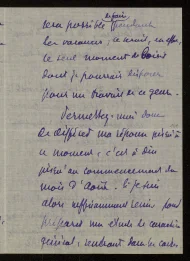 sera possible de faire pendant
les vacances; ce serait, en effet,
le seul moment de loisir
dont je pourrais disposer
pour un travail de ce genre.
Permettez-moi donc
de différer ma réponse jusqu'à
ce moment; c'est à dire
jusqu'au commencement du
mois d'Août. Si je suis
alors suffisamment remis pour
préparer une étude de caractère
général, rentrant dans le cadre